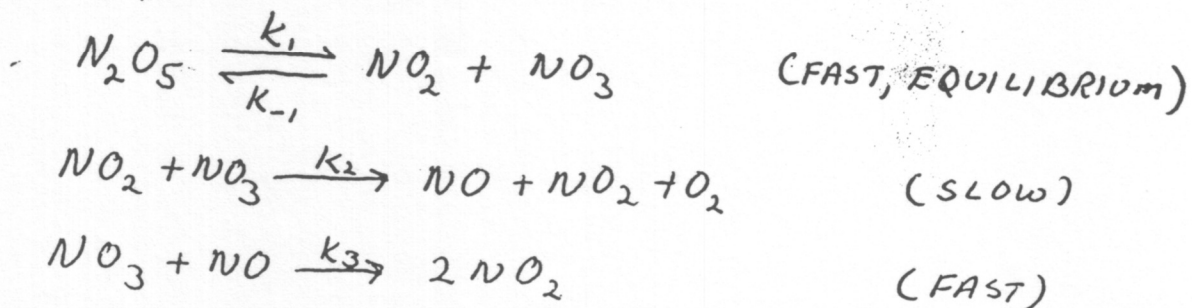 N₂O₅ ⇌ NO₂ + NO₃ (FAST, EQUILIBRIUM)
K₁
K₋₁
NO₂ + NO₃ —K₂→ NO + NO₂ + O₂ (SLOW)
NO₃ + NO —K₃→ 2 NO₂ (FAST)